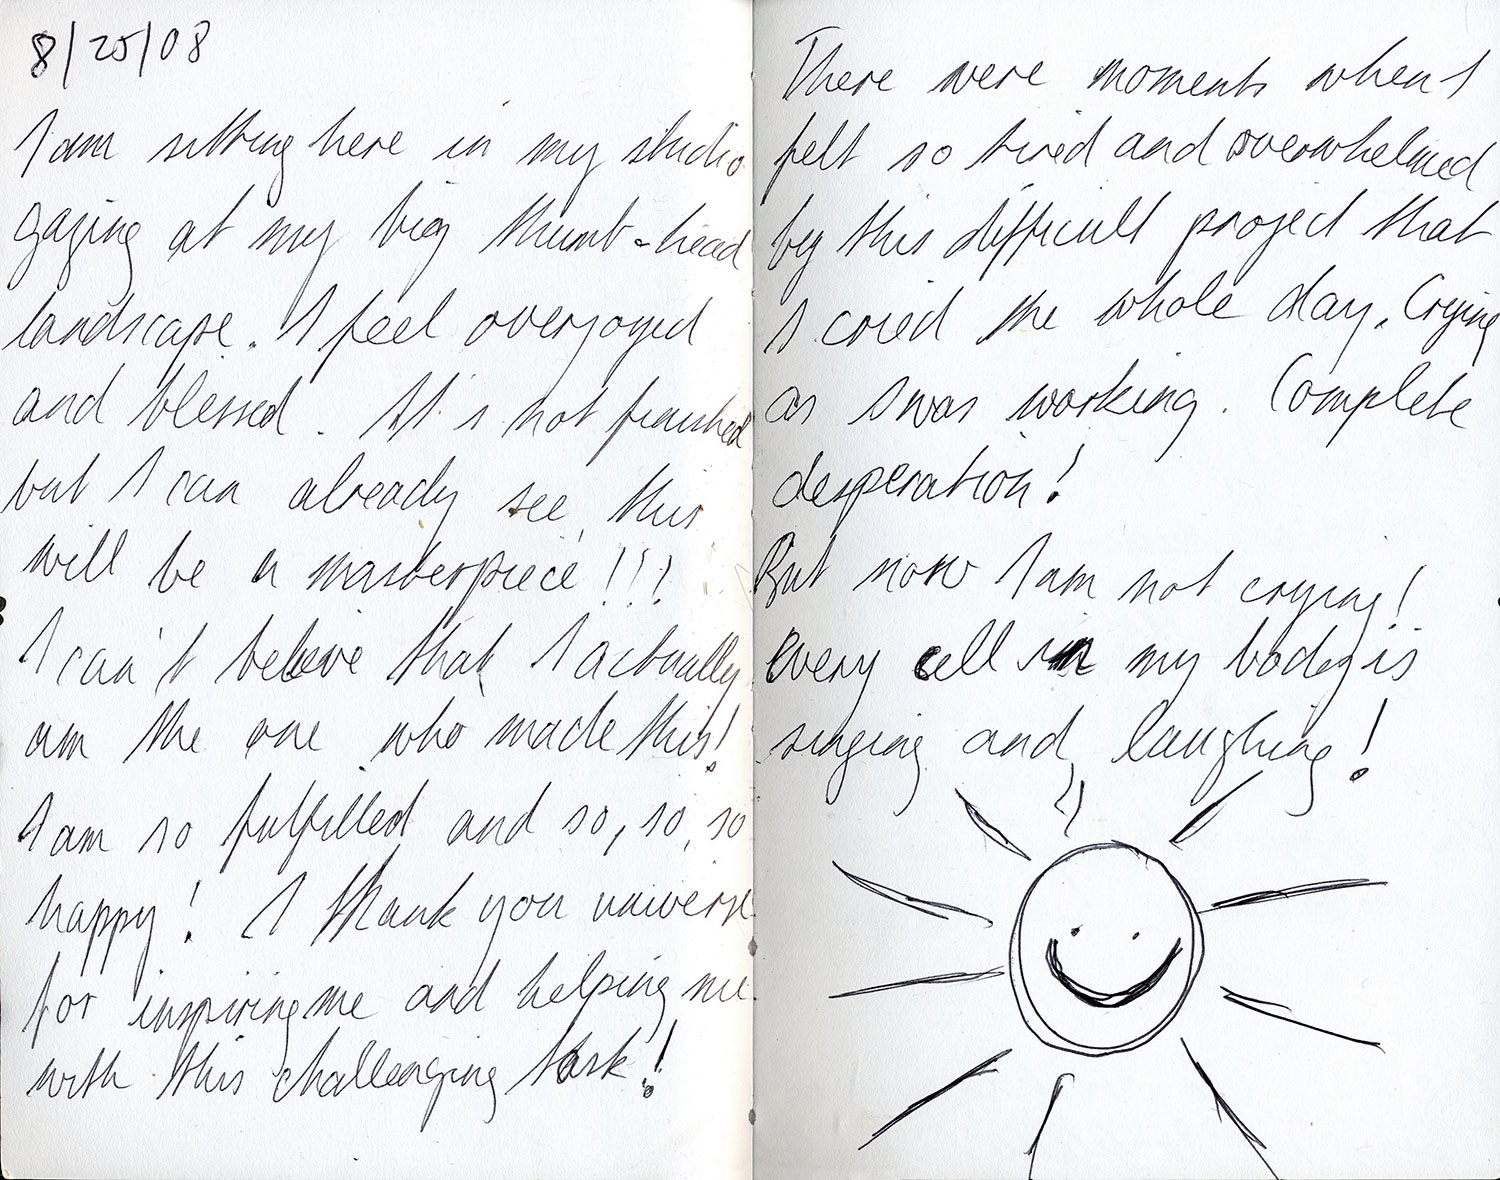 8/25/08
I am sitting here in my studio
gazing at my big thumb-head
landscape. I feel overjoyed
and blessed. It's not finished
but I can already see, this
will be a masterpiece!!!
I can't believe that I actually
am the one who made this!
I am so fulfilled and so, so, so
happy! I thank you universe
for inspiring me and helping me
with this challenging task!
There were moments when I
felt so tired and overwhelmed
by this difficult project that
I cried the whole day. Crying
as I was working. Complete
desperation!
But now I am not crying!
Every cell in my body is
singing and laughing!